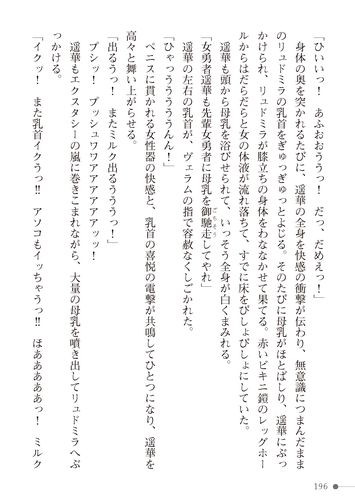 「ひいいっ！　あふおおううっ！　だっ、だめえっ！」
身体の奥を突かれるたびに、遥華の全身を快感の衝撃が伝わり、無意識につまんだまま
のリュドミラの乳首をぎゅっぎゅっとよじる。そのたびに母乳がほとばしり、遥華にぶっ
かけられ、リュドミラが膝立ちの身体をわななかせて果てる。赤いビキニ鎧のレッグホー
ルからはだらだらと女の体液が流れ落ちて、すでに床をびしょびしょにしていた。
遥華も頭から母乳を浴びせられて、いっそう全身が白くまみれる。
「女勇者遥華も先輩女勇者に母乳を御馳走してやれ」
ごちそう
遥華の左右の乳首が、ヴェラムの指で容赦なくしごかれた。
「ひゃっううううううん！」
ペニスに貫かれる女性器の快感と、乳首の喜悦の電撃が共鳴してひとつになり、遥華を
高々と舞い上がらせる。
「出るうっ！　またミルク出るうううっ！」
プシッ！　プッシュワワアアアアッッ！
遥華もエクスタシーの嵐に巻きこまれながら、大量の母乳を噴き出してリュドミラへぶ
っかける。
「イクッ！　また乳首イクうっ!!　アソコもイッちゃうっ!!　ほああああぁっ！　ミルク
196